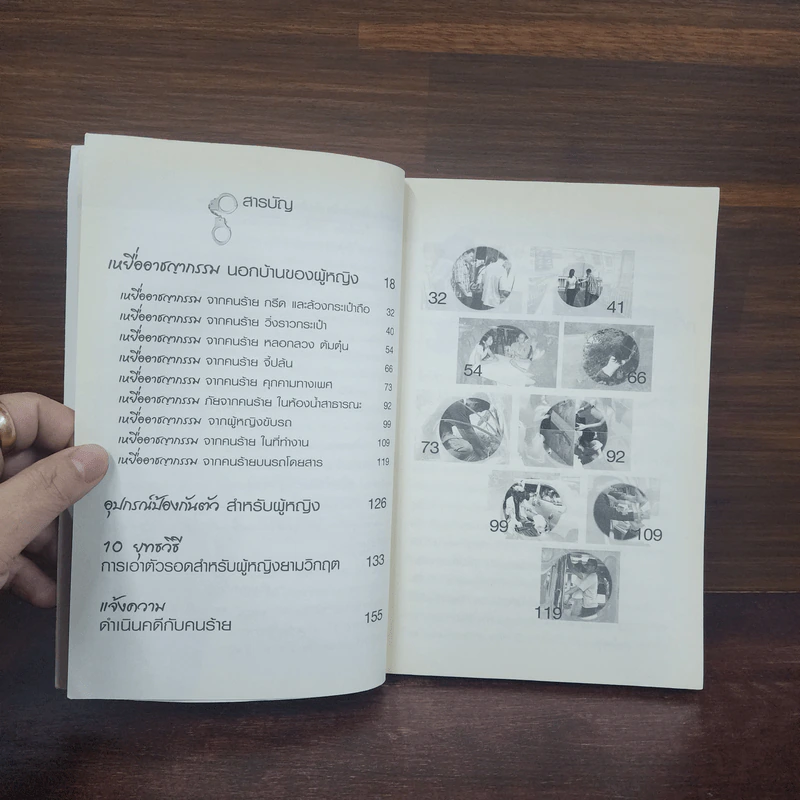 สารบัญ
เหยื่ออาชญากรรม นอกบ้านของผู้หญิง 18
เหยื่ออาชญากรรม จากคนร้าย กรีด และล้วงกระเป๋าถือ 32
เหยื่ออาชญากรรม จากคนร้าย วิ่งราวกระเป๋า 40
เหยื่ออาชญากรรม จากคนร้าย หลอกลวง ต้มตุ๋น 54
เหยื่ออาชญากรรม จากคนร้าย จี้ปล้น 66
เหยื่ออาชญากรรม จากคนร้าย คุกคามทางเพศ 73
เหยื่ออาชญากรรม ภัยจากคนร้าย ในห้องน้ำสาธารณะ 92
เหยื่ออาชญากรรม จากผู้หญิงขับรถ 99
เหยื่ออาชญากรรม จากคนร้าย ในที่ทำงาน 109
เหยื่ออาชญากรรม จากคนร้ายบนรถโดยสาร 119
อุปกรณ์ป้องกันตัว สำหรับผู้หญิง 126
10 ยุทธวิธี
การเอาตัวรอดสำหรับผู้หญิงยามวิกฤต 133
แจ้งความ
ดำเนินคดีกับคนร้าย 155
32
41
54
66
73
92
99
109
119